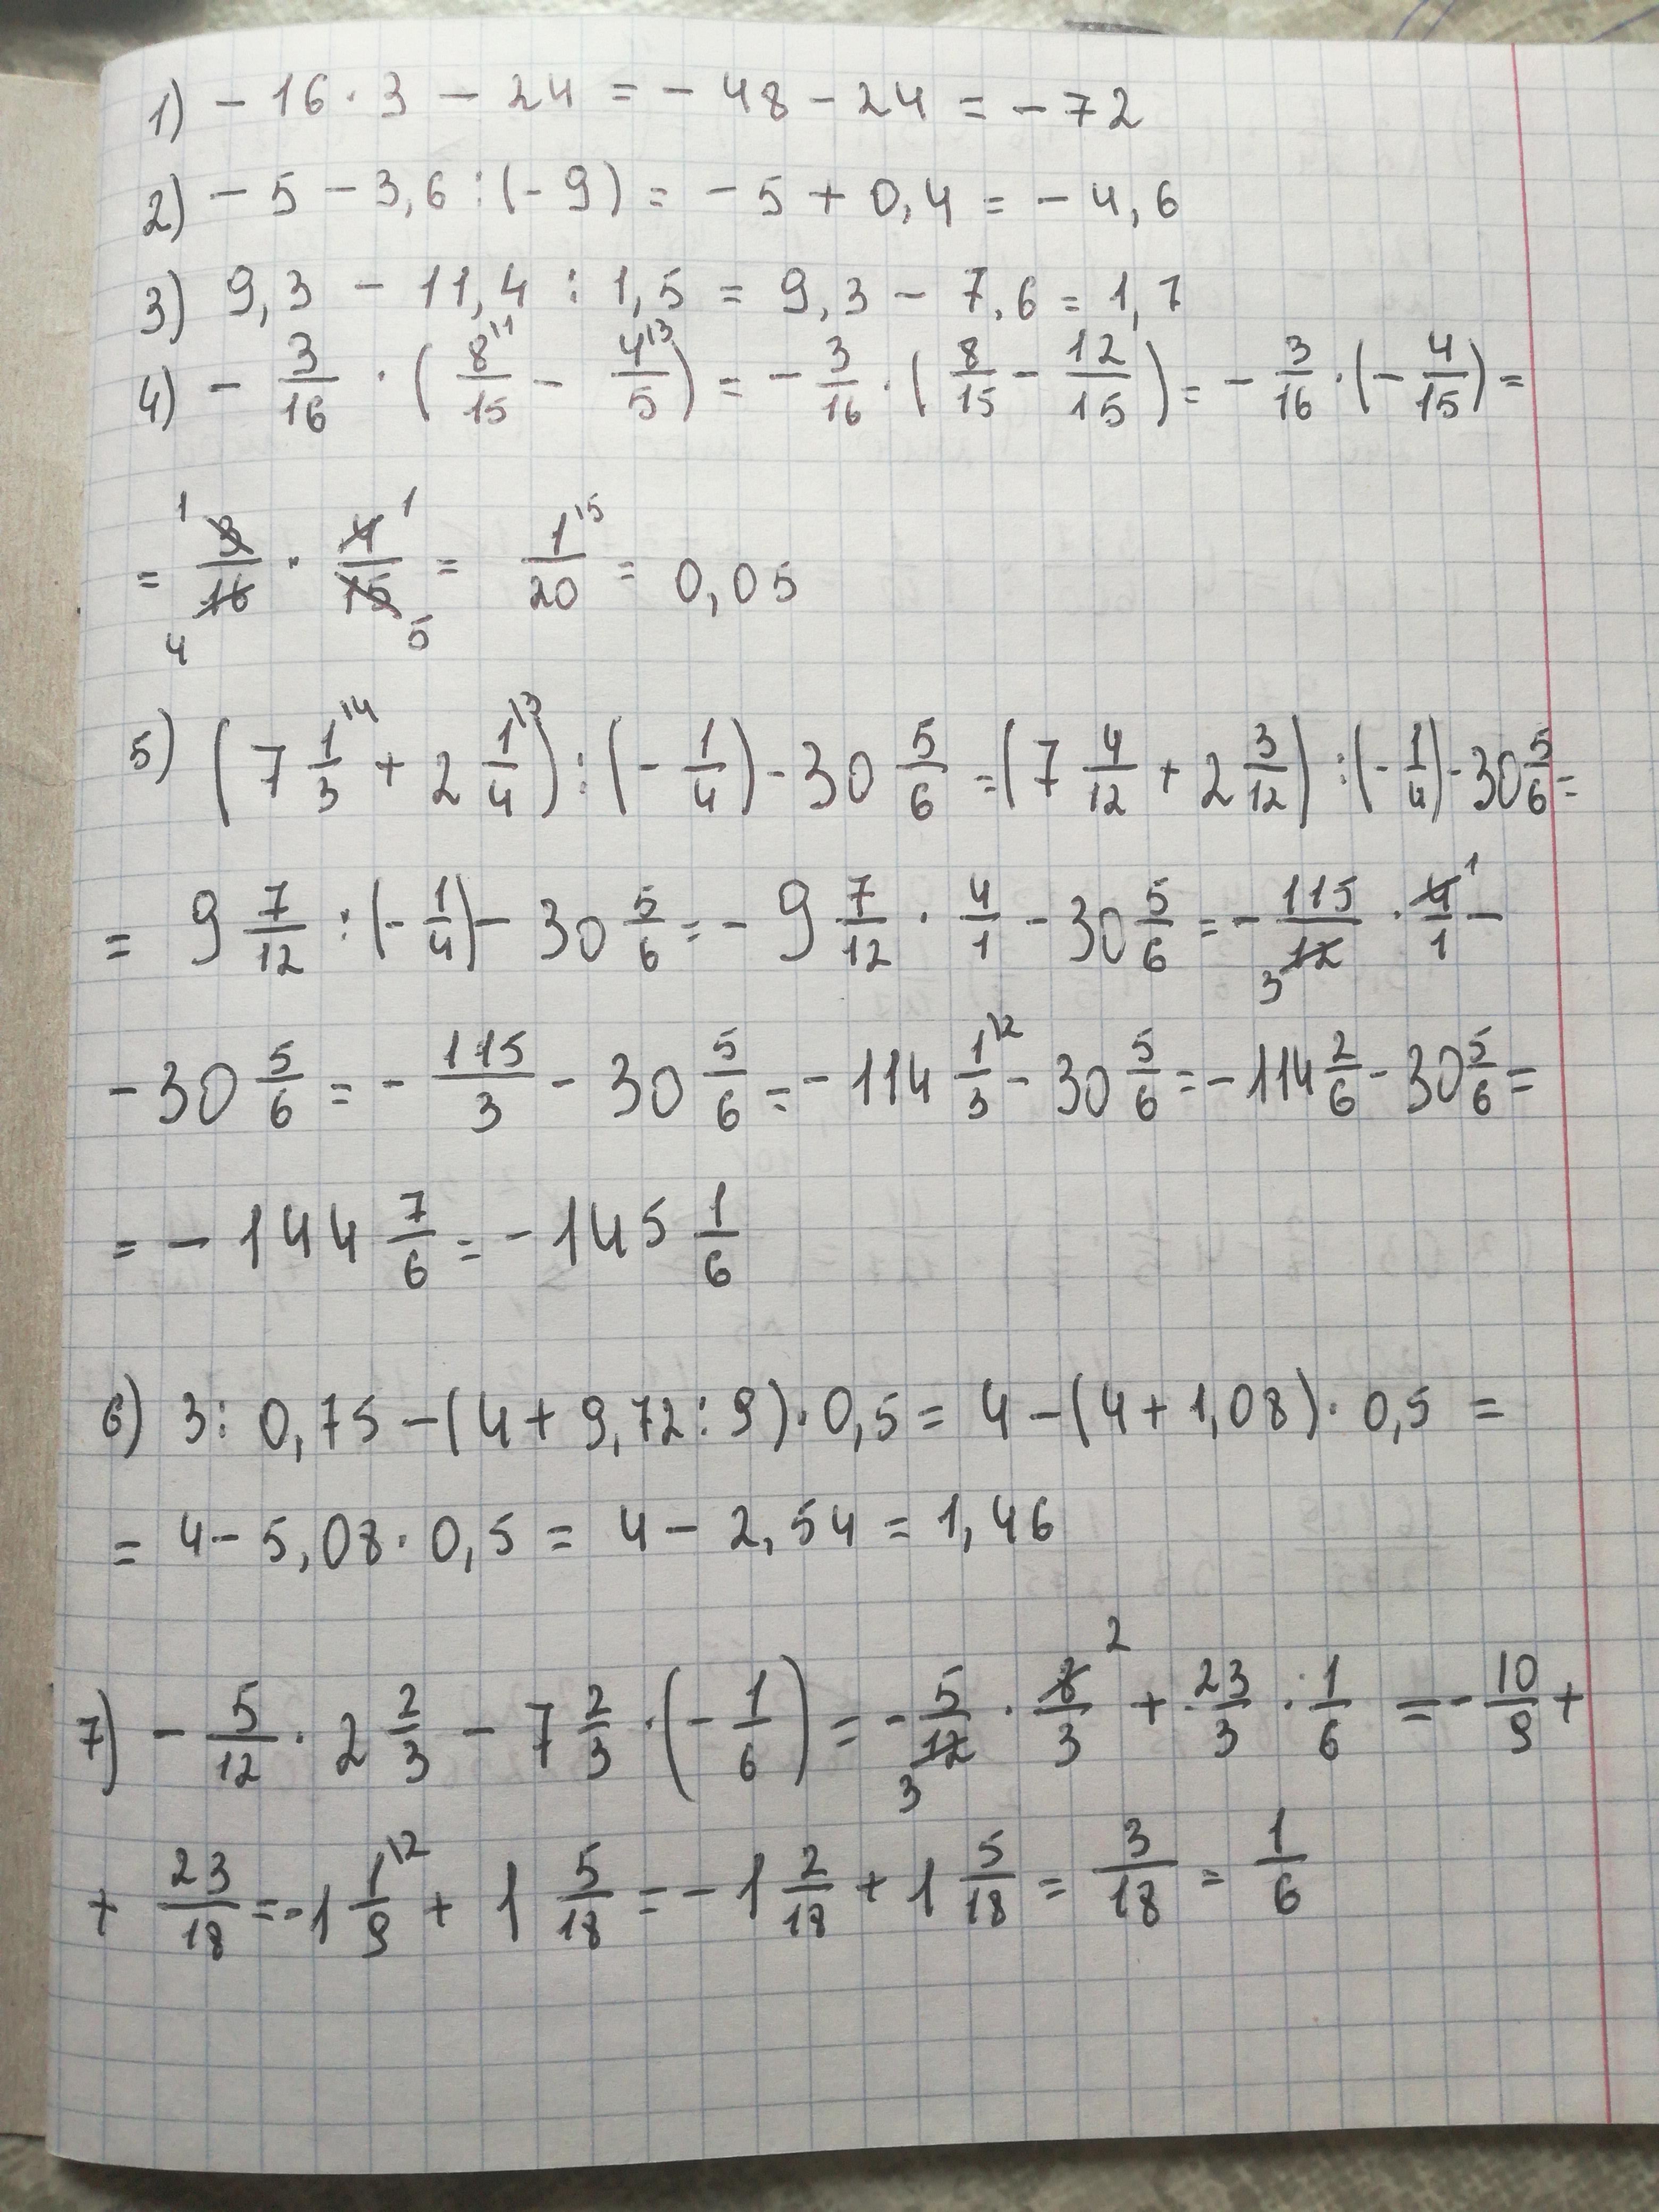 1) - 16 · 3 - 24 = - 48 - 24 = - 72
2) - 5 - 3,6 : (- 9) = - 5 + 0,4 = - 4,6
3) 9,3 - 11,4 : 1,5 = 9,3 - 7,6 = 1,7
4) - 3/16 · (8/15 \1 - 4/5 \3) = - 3/16 · (8/15 - 12/15) = - 3/16 · (- 4/15) =
= 1 3/16 4 · 4/15 1 5 = 1/20 \5 = 0,05
5) (7 1/3 \4 + 2 1/4 \3) : (- 1/4) - 30 5/6 = (7 4/12 + 2 3/12) : (- 1/4) - 30 5/6 =
= 9 7/12 : (- 1/4) - 30 5/6 = - 9 7/12 · 4/1 - 30 5/6 = - 115/12 3 · 4/1 1 -
- 30 5/6 = - 115/3 - 30 5/6 = - 114 1/3 \2 - 30 5/6 = - 114 2/6 - 30 5/6 =
= - 144 7/6 = - 145 1/6
6) 3 : 0,75 - (4 + 9,72 : 9) · 0,5 = 4 - (4 + 1,08) · 0,5 =
= 4 - 5,08 · 0,5 = 4 - 2,54 = 1,46
7) - 5/12 · 2 2/3 - 7 2/3 · (- 1/6) = - 5/12 3 · 8/3 2 + 23/3 · 1/6 = - 10/9 +
+ 23/18 = - 1 1/9 \2 + 1 5/18 = - 1 2/18 + 1 5/18 = 3/18 = 1/6